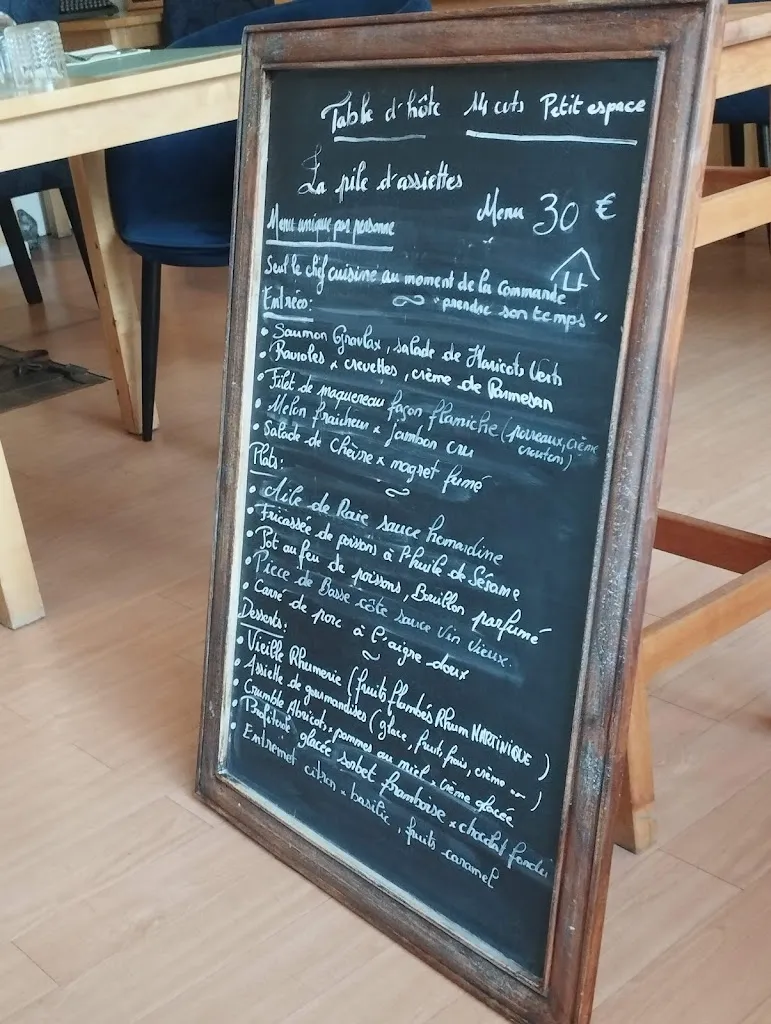 Table d'hôte 14 cvts Petit espace
La pile d'assiettes
Menu 30 €
Menu unique par personne
Seul le chef cuisine au moment de la commande
"prendre son temps"
Entrées:
• Saumon Gravlax, salade de Haricots Verts
• Ravioles x crevettes, crème de Parmesan
• Filet de maquereau façon flamiche (poireaux, crème
croutons)
• Melon fraicheur x Jambon cru
• Salade de Chèvre x magret fumé
Plats:
• Aile de Raie sauce homardine
• Fricassée de poissons à l'huile de Sésame
• Pot au feu de poissons, Bouillon parfumé
• Piece de Basse côte sauce Vin Vieux.
• Carré de porc à l'aigre doux
Desserts:
• Vieille Rhumerie (fruits flambés Rhum MARTINIQUE)
• Assiette de gourmandises (glace, fruits frais, crème ...)
• Crumble Abricots x pommes au miel x crème glacée
• Profiterole glacée sorbet framboise x chocolat fondu
• Entremet citron x basilic, fruits caramel